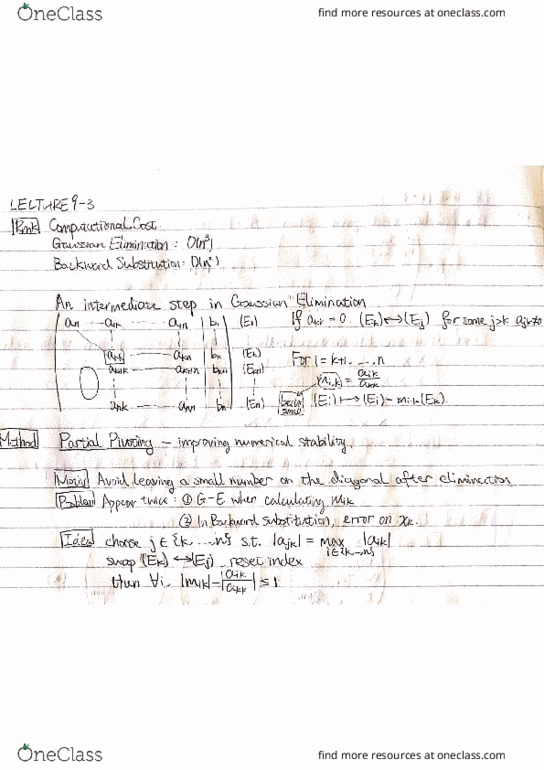 OneClass
find more resources at oneclass.com
LECTURE 9-3
Rmk Computational Cost.
Gaussian Elimination : O(n³)
Backward Substitution : O(n²)
An intermediate step in Gaussian Elimination
If akk = 0. (Ek) ↔ (Ej) for some j>k ajk≠0
a11 --- a1k ------ a1n | b1 (E1)
akk ------ akn bk (Ek)
ak+1k ------ ak+1n bk+1 (Ek+1)
ank ------ ann bn (En)
For i = k+1, ..., n
mik = aik / akk
(Ei) ↔ (Ei) - mik(Ek).
Method Partial Pivoting – improving numerical stability.
Avoid leaving a small number on the diagonal after elimination
Problem Appear twice : ① G-E when calculating mik
② In Backward substitution, error on xk.
Idea choose j ∈ {k ... n} s.t. |ajk| = max i∈{k...n} |aik|
swap (Ek) ↔ (Ej) reset index
then ∀i |mik| = |aik / akk| ≤ 1
OneClass
find more resources at oneclass.com